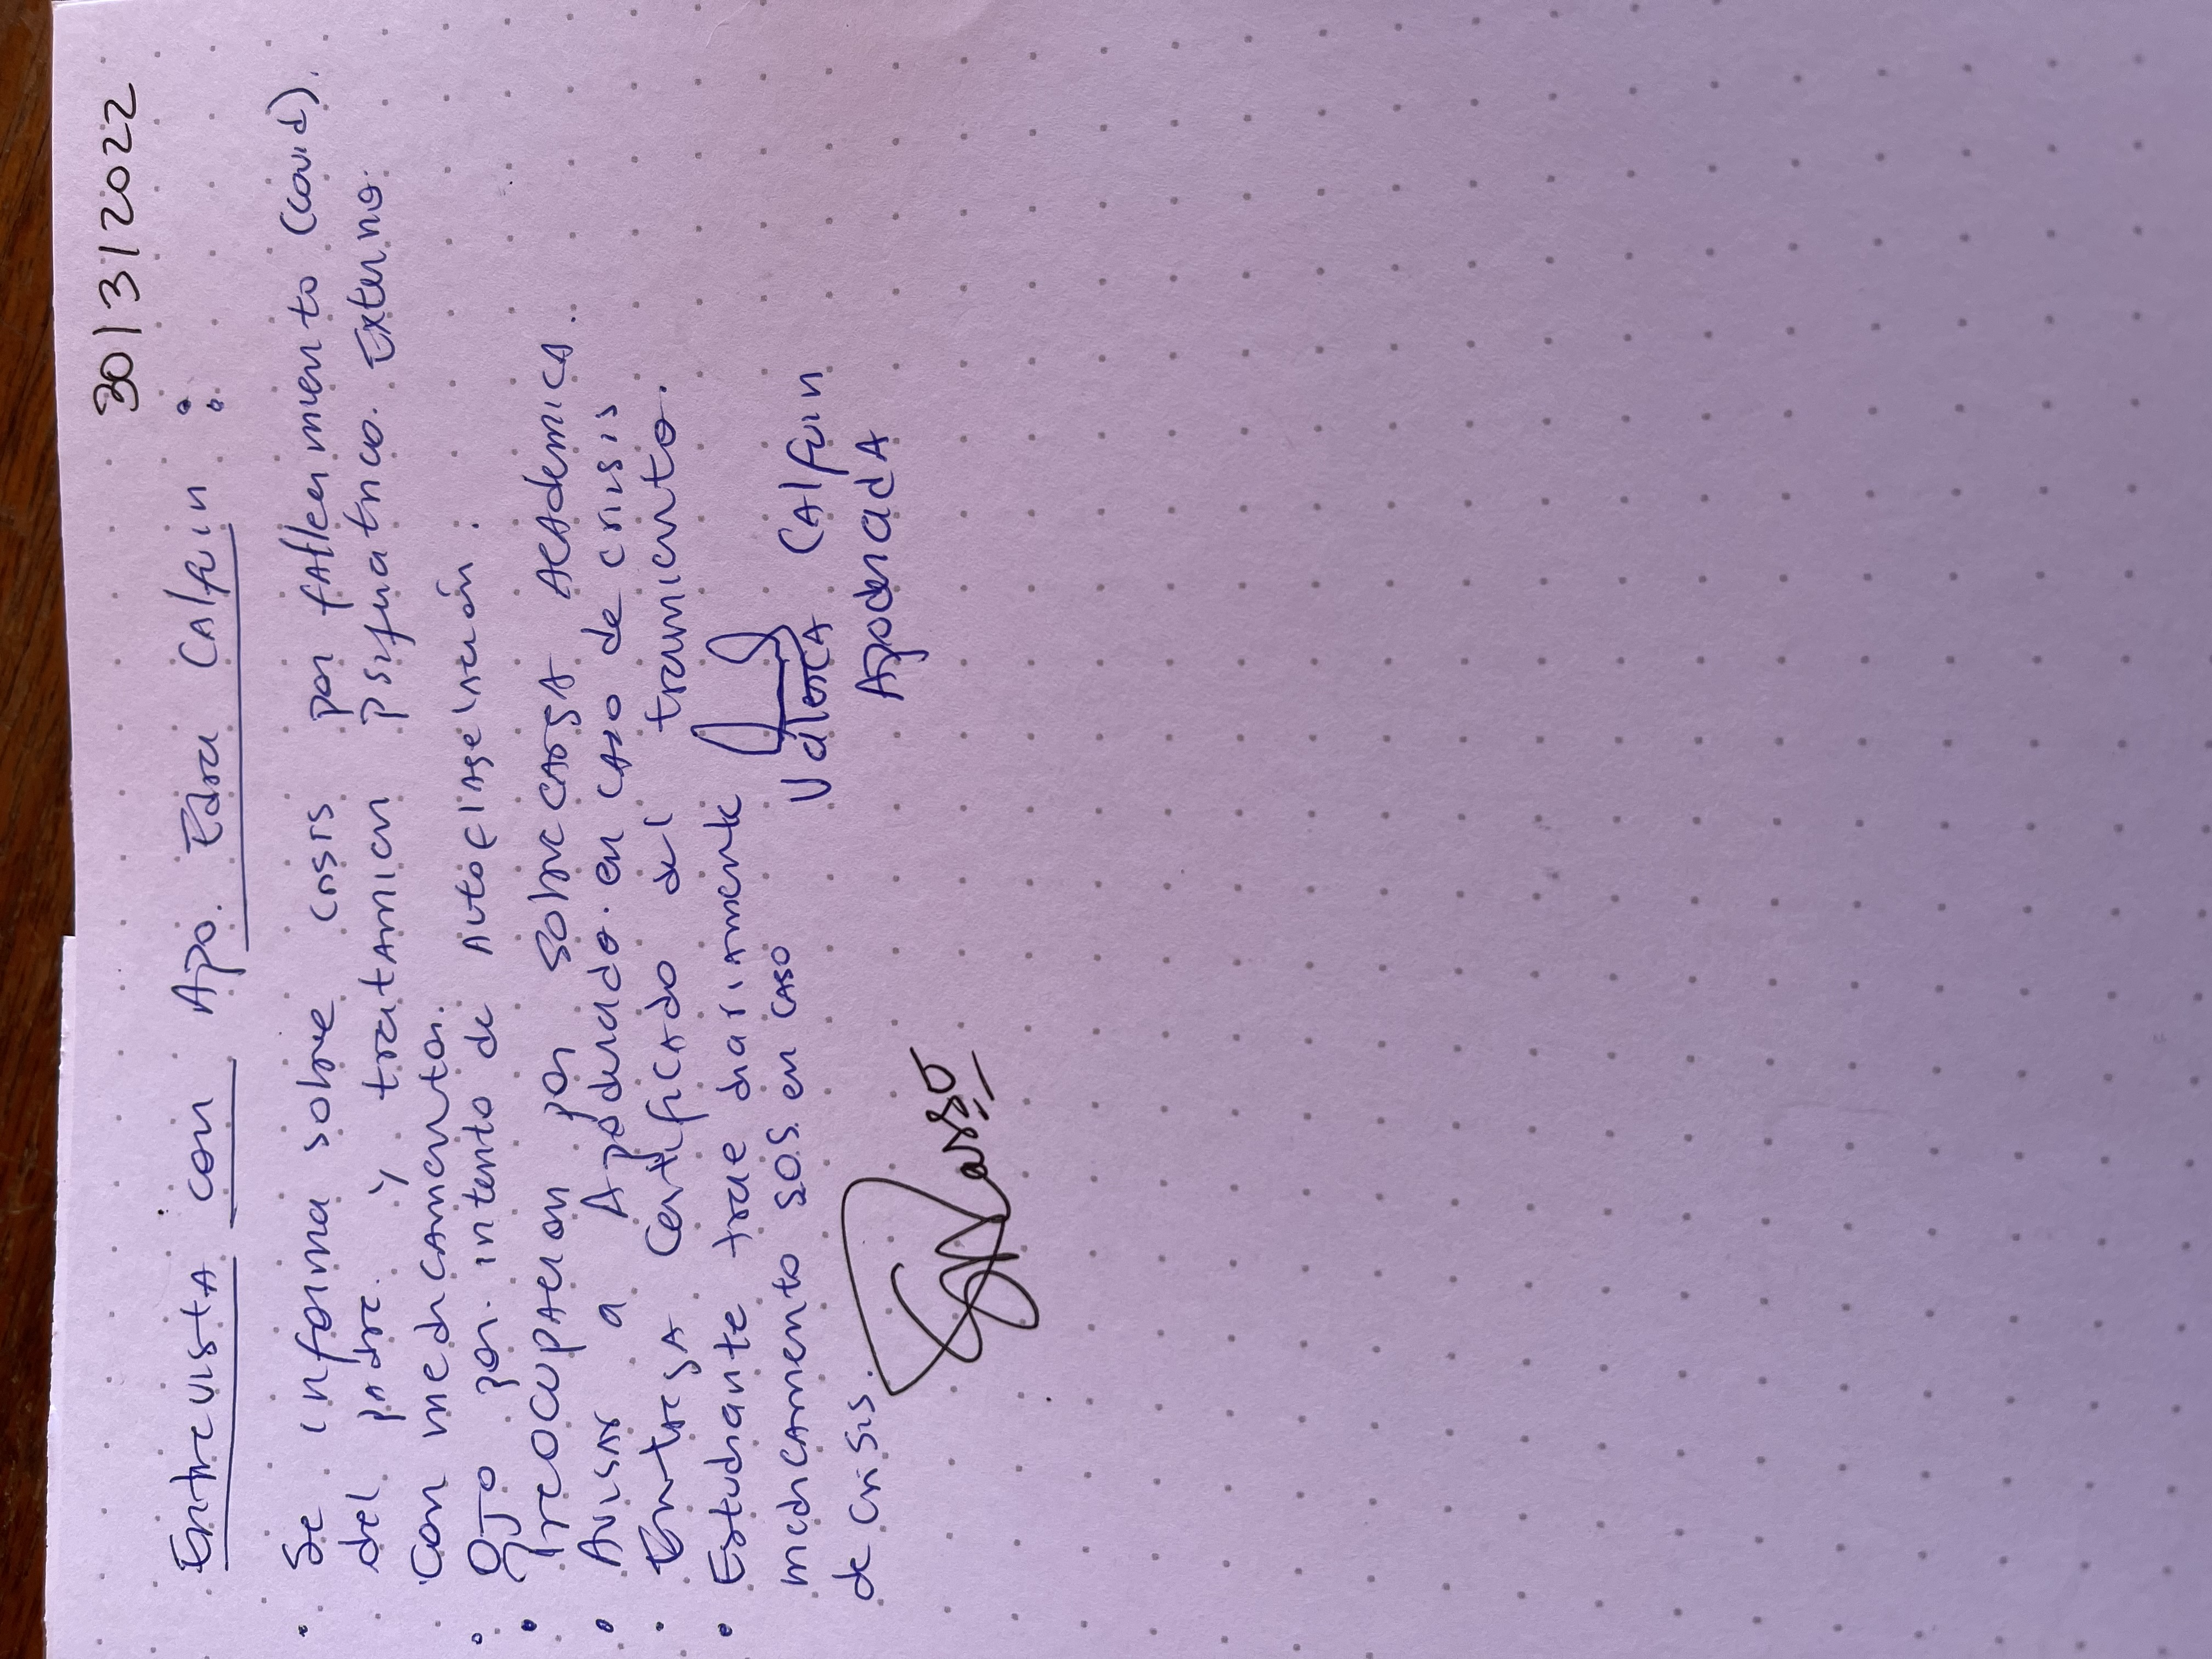 30/3/2022
Entrevista con Apo. Edra Calfuin :
• Se informa sobre crisis por fallecimiento (covid).
del padre. y tratamien psiquiatrico. Externo.
con medicamentos.
• Ojo por. intento de autoflagelación.
• Preocupacion por sobrecarga Academica.
• Avisar a Apoderado. en caso de crisis
• Entrega Certificado del tratamiento.
• Estudiante trae diariamente
medicamento S.O.S. en caso
de crisis.
Calfuin
Apoderada